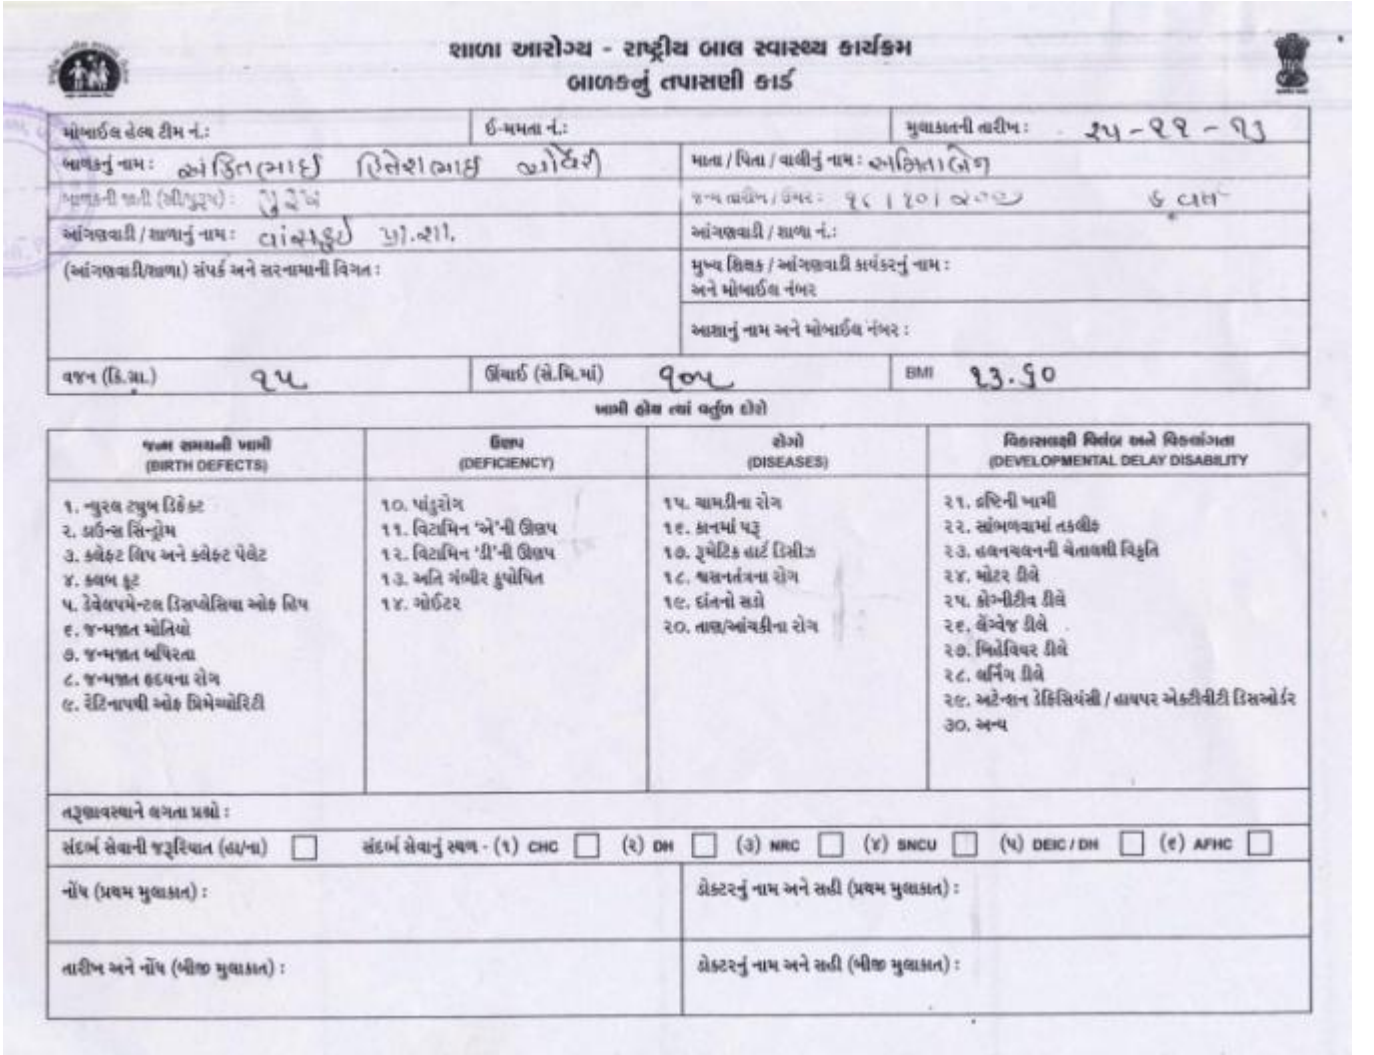 શાળા આરોગ્ય - રાષ્ટ્રીય બાલ સ્વાસ્થ્ય કાર્યક્રમ
બાળકનું તપાસણી કાર્ડ
મોબાઈલ હેલ્થ ટીમ નં.: ઈ-મમતા નં.: મુલાકાતની તારીખ : ૨૫-૧૧-૧૩
બાળકનું નામ : અંકિતભાઈ હિતેશભાઈ ચૌધરી માતા / પિતા / વાલીનું નામ : અમિતાબેન
બાળકની જાતી (સ્ત્રી/પુરૂષ) : પુરૂષ જન્મ તારીખ / ઉંમર : ૧૮।૧૦।૨૦૦૭ ૬ વર્ષ
આંગણવાડી / શાળાનું નામ : વાંસકુઈ પ્રા.શા. આંગણવાડી / શાળા નં.:
(આંગણવાડી/શાળા) સંપર્ક અને સરનામાની વિગત : મુખ્ય શિક્ષક / આંગણવાડી કાર્યકરનું નામ :
અને મોબાઈલ નંબર
આશાનું નામ અને મોબાઈલ નંબર :
વજન (કિ.ગ્રા.) ૧૫ ઊંચાઈ (સે.મિ.માં) ૧૦૫ BMI ૧૩.૬૦
ખામી હોય ત્યાં વર્તુળ દોરો
જન્મ સમયની ખામી ઉણપ રોગો વિકાસલક્ષી વિલંબ અને વિકલાંગતા
(BIRTH DEFECTS) (DEFICIENCY) (DISEASES) (DEVELOPMENTAL DELAY DISABILITY
૧. ન્યુરલ ટ્યુબ ડિફેક્ટ
૨. ડાઉન્સ સિન્ડ્રોમ
૩. ક્લેફટ લિપ અને ક્લેફ્ટ પેલેટ
૪. ક્લબ ફૂટ
૫. ડેવેલપમેન્ટલ ડિસપ્લેસિયા ઓફ હિપ
૬. જન્મજાત મોતિયો
૭. જન્મજાત બધિરતા
૮. જન્મજાત હૃદયના રોગ
૯. રેટિનાપથી ઓફ પ્રિમેચ્યોરિટી
૧૦. પાંડુરોગ
૧૧. વિટામિન ‘એ’ની ઊણપ
૧૨. વિટામિન ‘ડી’ની ઊણપ
૧૩. અતિ ગંભીર કુપોષિત
૧૪. ગોઈટર
૧૫. ચામડીના રોગ
૧૬. કાનમાં પરૂ
૧૭. રૂમેટિક હાર્ટ ડિસીઝ
૧૮. શ્વસનતંત્રના રોગ
૧૯. દાંતનો સડો
૨૦. તાણ/આંચકીના રોગ
૨૧. દ્રષ્ટિની ખામી
૨૨. સાંભળવામાં તકલીફ
૨૩. હલનચલનની ચેતાલક્ષી વિકૃતિ
૨૪. મોટર ડીલે
૨૫. કોગ્નીટીવ ડીલે
૨૬. લેંગ્વેજ ડીલે
૨૭. બિહેવિયર ડીલે
૨૮. લર્નિંગ ડીલે
૨૯. અટેન્શન ડેફિસિયંસી / હાયપર એક્ટીવીટી ડિસઓર્ડર
૩૦. અન્ય
તરૂણાવસ્થાને લગતા પ્રશ્નો :
સંદર્ભ સેવાની જરૂરિયાત (હા/ના) સંદર્ભ સેવાનું સ્થળ - (૧) CHC (૨) DH (૩) NRC (૪) SNCU (૫) DEIC / DH (૬) AFHC
નોંધ (પ્રથમ મુલાકાત) : ડોક્ટરનું નામ અને સહી (પ્રથમ મુલાકાત) :
તારીખ અને નોંધ (બીજી મુલાકાત) : ડોક્ટરનું નામ અને સહી (બીજી મુલાકાત) :